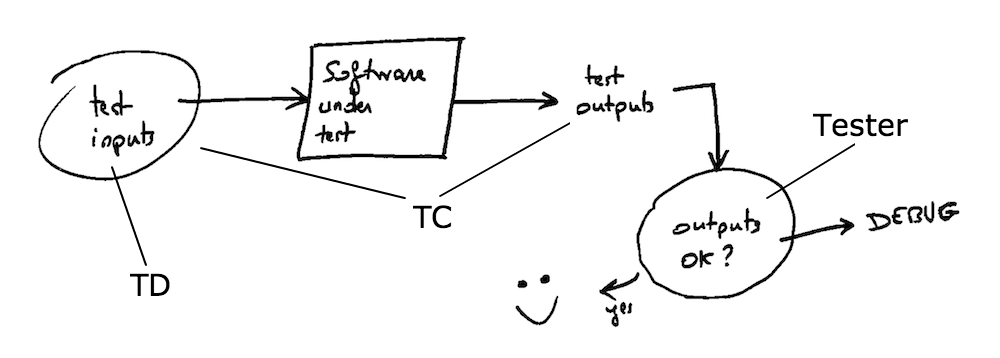 test
inputs
Software
under
test
test
outputs
Tester
TC
outputs
OK?
DEBUG
TD
yes